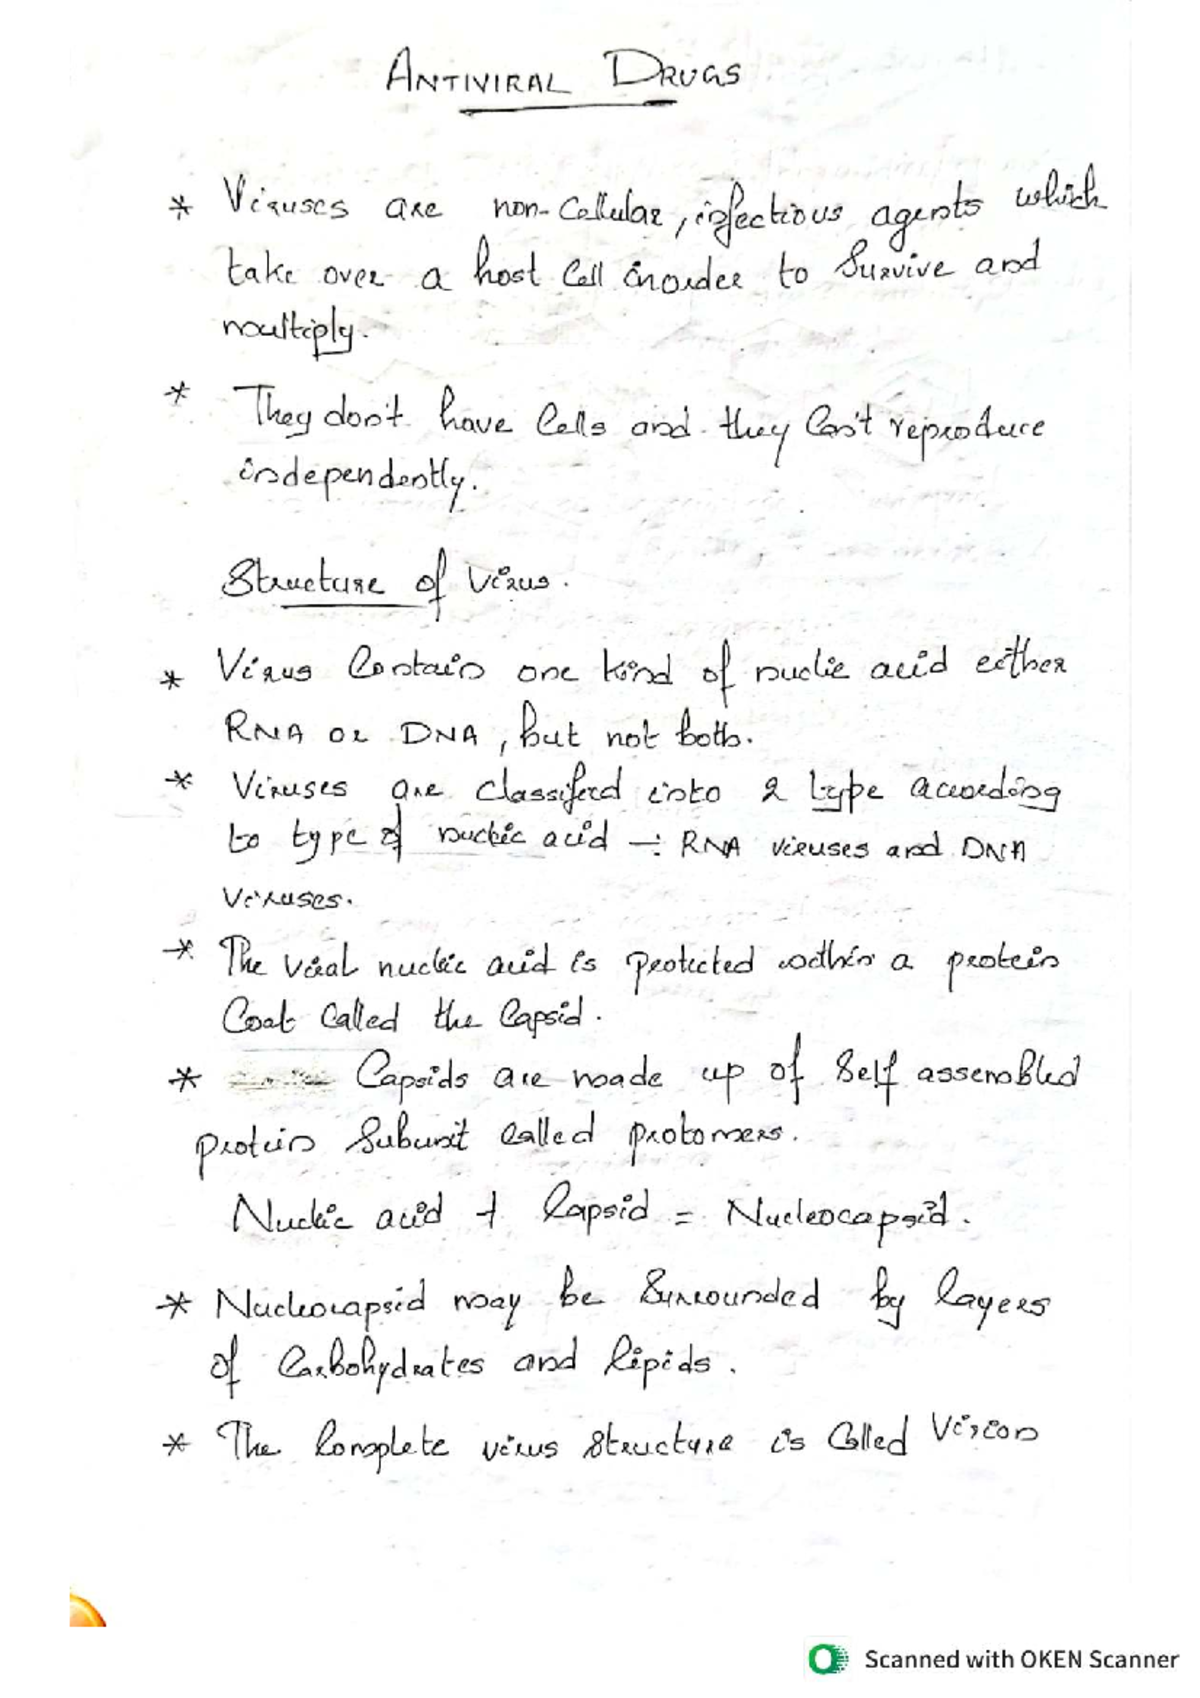 ANTIVIRAL DRUGS
* Viruses are non-cellular, infectious agents which
take over a host cell inorder to survive and
multiply.
* They don't have cells and they can't reproduce
independently.
Structure of virus.
* Virus contain one kind of nuclic acid either
RNA or DNA, but not both.
* Viruses are classified into 2 type according
to type of nucleic acid ÷ RNA viruses and DNA
viruses.
* The viral nucleic acid is protected within a protein
coat called the capsid.
* Capsids are made up of self assembled
protein subunit called protomers.
Nucleic acid + capsid = Nucleocapsid.
* Nucleocapsid may be surrounded by layers
of carbohydrates and lipids.
* The complete virus structure is called Virion
Scanned with OKEN Scanner